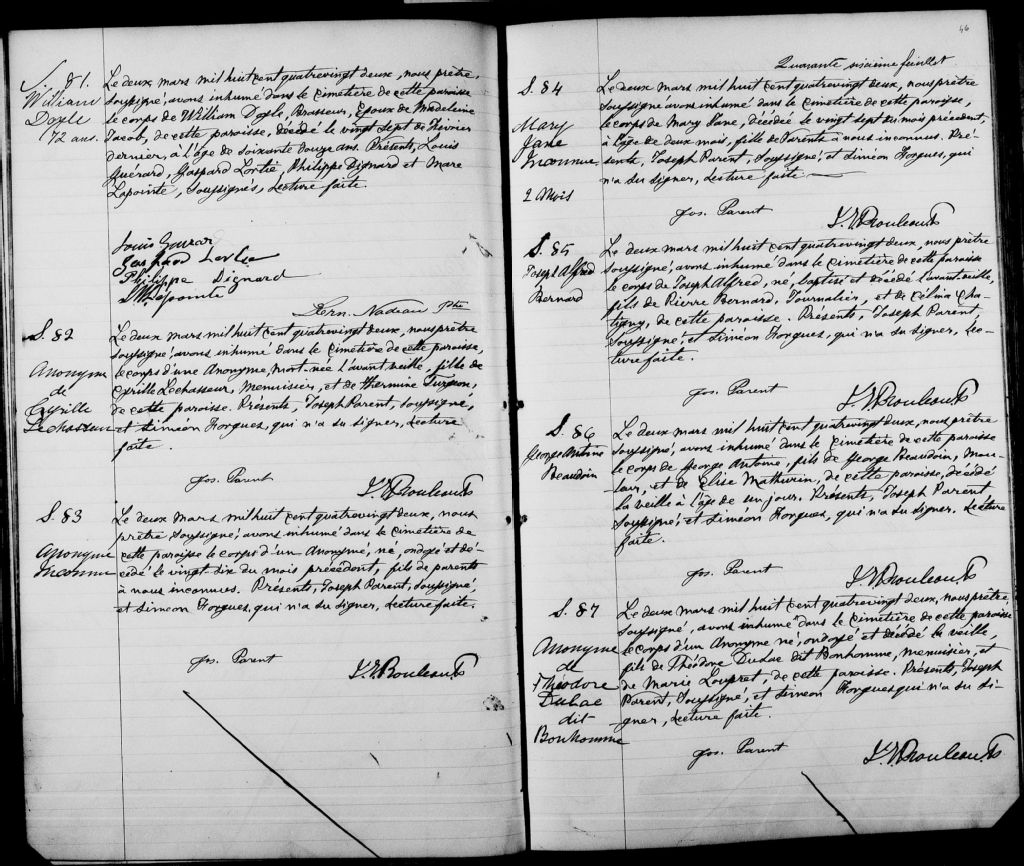 S. 81.
William
Doyle
72 ans.
Le deux mars mil huit cent quatrevingt deux, nous prêtre,
soussigné, avons inhumé dans le cimetière de cette paroisse
le corps de William Doyle, Brasseur, Epoux de Madeleine
Jacob, de cette paroisse, décédé le vingt sept de Février
dernier, à l'âge de soixante douze ans. Présents, Louis
Guérard, Gaspard Lortie, Philippe Dignard et Marc
Lapointe, soussignés, Lecture faite.
Louis Guérar
Gaspard Lortie
Philippe Dignard
M Lapointe
Nadeau Ptre
S. 82
Anonyme
de
Cyrille
Lechasseur
Le deux mars mil huit cent quatrevingt deux, nous prêtre
soussigné, avons inhumé dans le cimetière de cette paroisse,
le corps d'une Anonyme, mort-née l'avant veille, fille de
Cyrille Lechasseur, Menuisier, et de Herminie Turgeon,
de cette paroisse. Présents, Joseph Parent, soussigné,
et Siméon Forgues, qui n'a su signer, Lecture
faite.
Jos. Parent
S. 83
Anonyme
Inconnu
Le deux mars mil huit cent quatrevingt deux, nous
prêtre soussigné, avons inhumé dans le cimetière de
cette paroisse le corps d'un Anonyme, né, ondoyé et dé-
cédé le vingt-six du mois précédent, fils de parents
à nous inconnus. Présents, Joseph Parent, soussigné,
et Siméon Forgues, qui n'a su signer, Lecture faite.
Jos. Parent
46
Quarante sixième feuillet
S. 84
Mary
Jane
Inconnue
2 Mois
Le deux mars mil huit cent quatrevingt deux, nous prêtre
soussigné avons inhumé dans le cimetière de cette paroisse,
le corps de Mary Jane, décédée le vingt sept du mois précédent,
à l'âge de deux mois, fille de Parents à nous inconnus. Pré-
sents, Joseph Parent, soussigné, et Siméon Forgues, qui
n'a su signer, Lecture faite
Jos. Parent
S. 85
Joseph Alfred
Bernard
Le deux mars mil huit cent quatrevingt deux, nous prêtre
soussigné, avons inhumé dans le cimetière de cette paroisse
le corps de Joseph Alfred, né, baptisé et décédé l'avant veille,
fils de Pierre Bernard, Journalier, et de Célina Cha-
tigny, de cette paroisse. Présents, Joseph Parent,
soussigné, et Siméon Forgues, qui n'a su signer, Lec-
ture faite.
Jos. Parent
S. 86
George Antoine
Beaudoin
Le deux mars mil huit cent quatrevingt deux, nous prêtre
soussigné, avons inhumé dans le cimetière de cette paroisse
le corps de George Antoine, fils de George Beaudoin, Mou-
leur, et de Elise Mathurin, de cette paroisse, décédé
la veille à l'âge de un jour. Présents, Joseph Parent
soussigné, et Siméon Forgues, qui n'a su signer. Lecture
faite.
Jos. Parent
S. 87
Anonyme
de
Théodore
Dulac
dit
Bonhomme
Le deux mars mil huit cent quatrevingt deux, nous prêtre
soussigné, avons inhumé dans le cimetière de cette paroisse
le corps d'un Anonyme né, ondoyé et décédé la veille,
fils de Théodore Dulac dit Bonhomme, menuisier, et
de Marie Loupret, de cette paroisse. Présents, Joseph
Parent, soussigné, et Siméon Forgues qui n'a su si-
gner, Lecture faite.
Jos. Parent